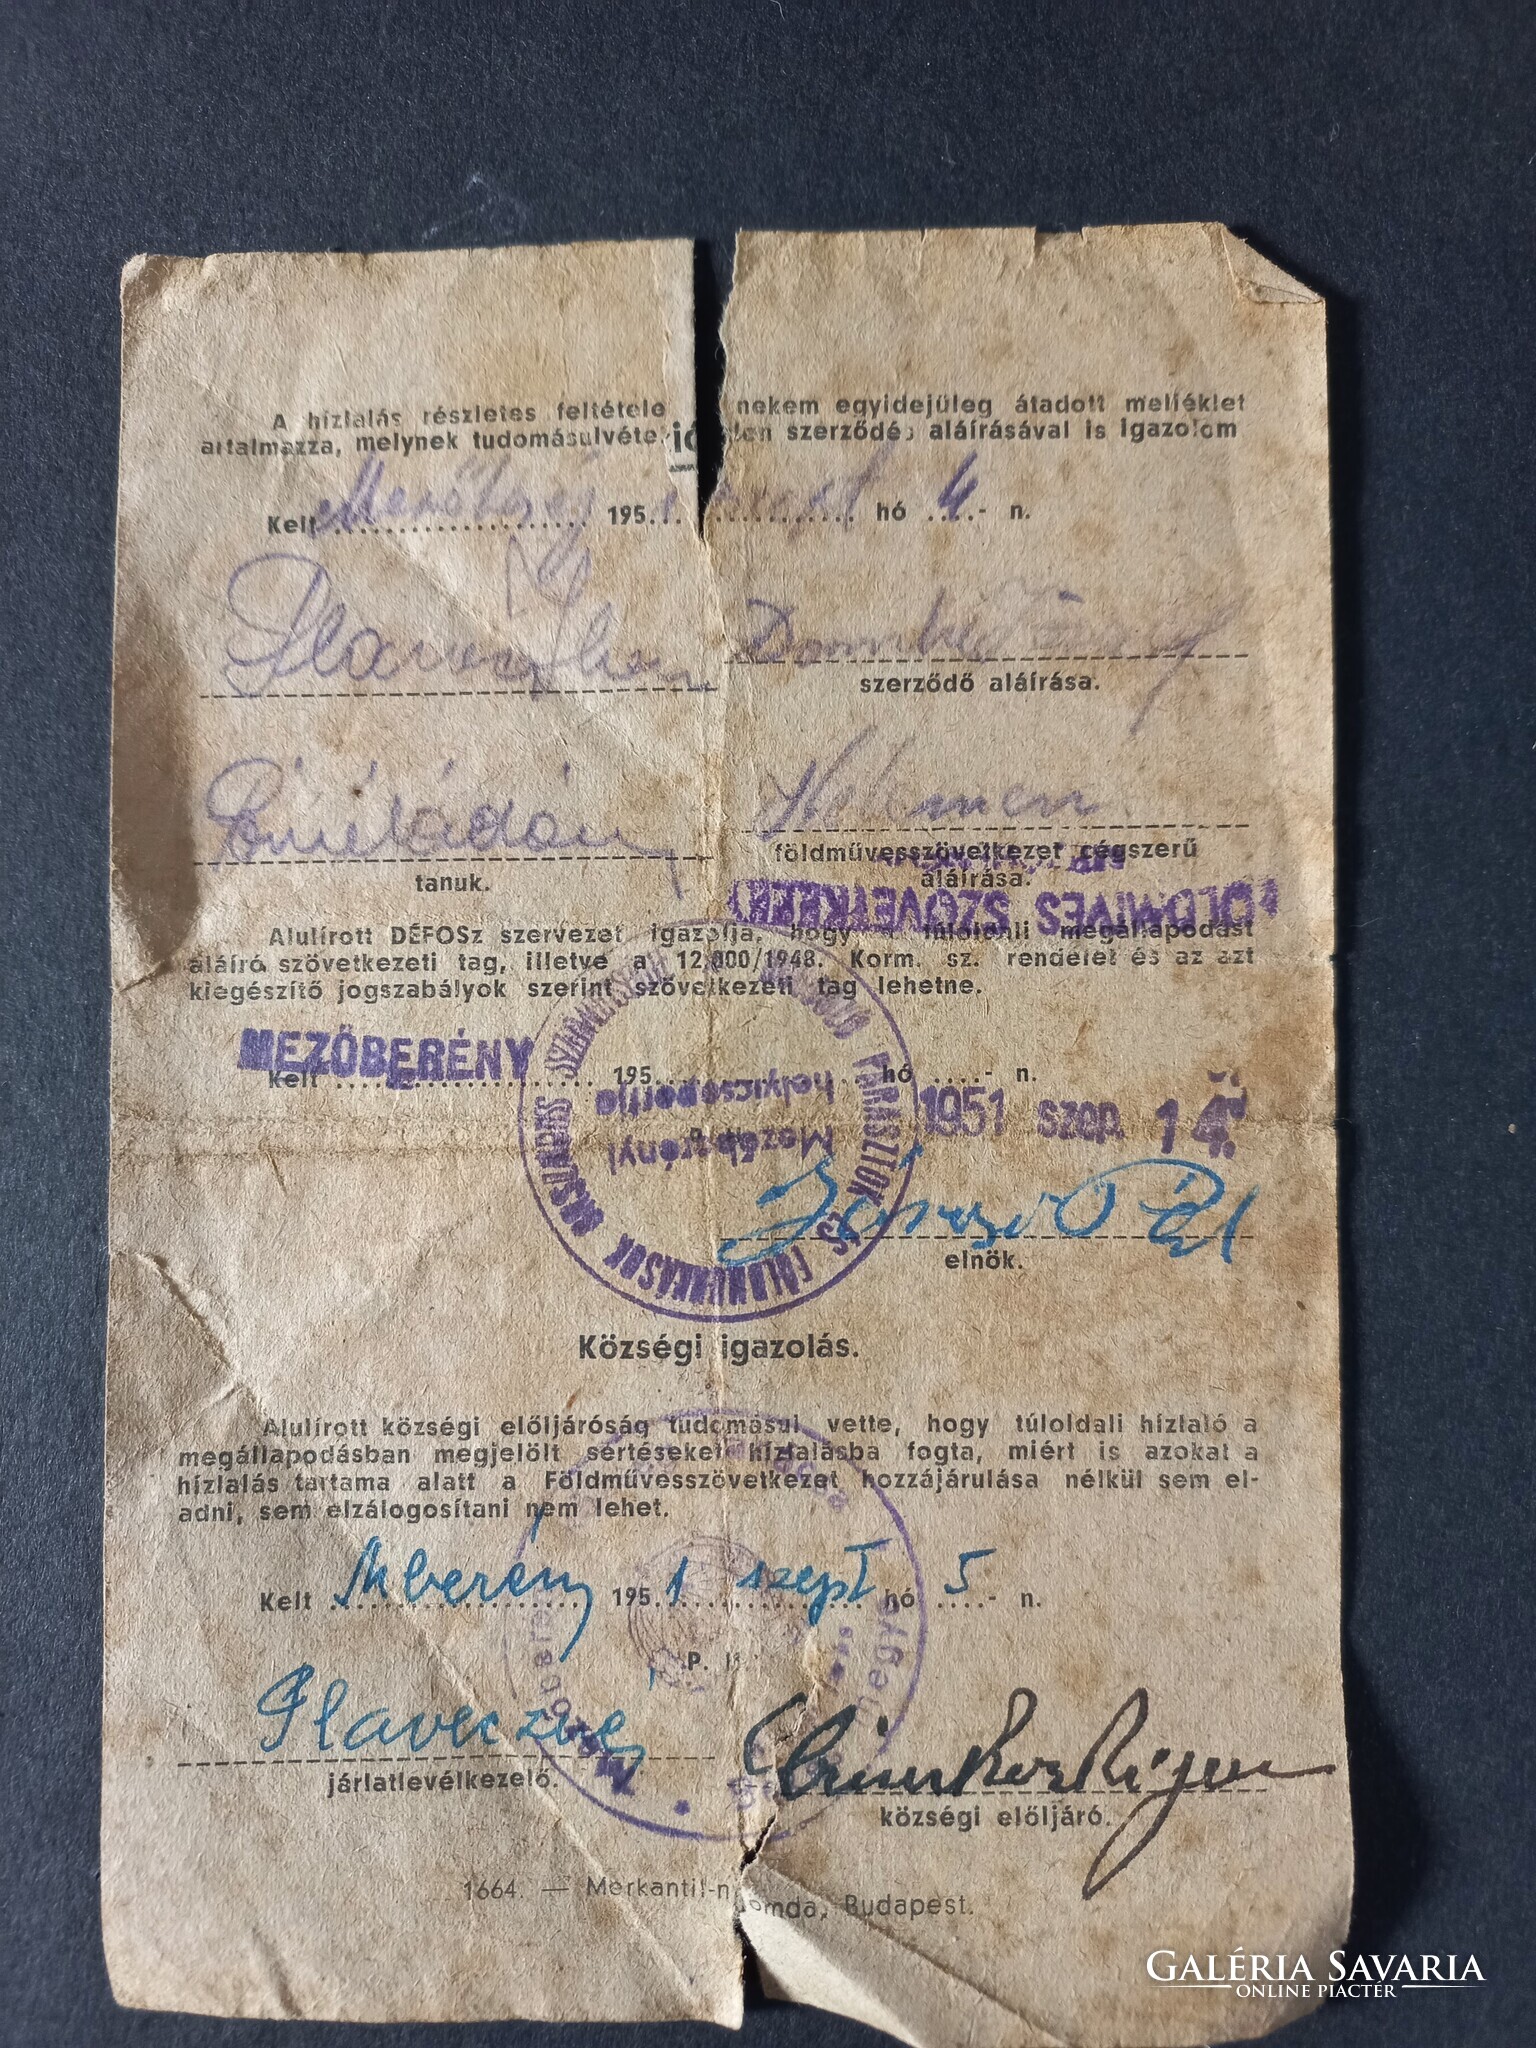 A hízlalás részletes feltétele nekem egyidejűleg átadott melléklet
artalmazza, melynek tudomásulvéte jelen szerződés aláírásával is igazolom
Kelt 195 hó 4 - n.
szerződő aláírása.
Kelemen
tanuk.
földművesszövetkezet cégszerű
aláírása.
FÖLDMIVES SZÖVETKEZET
Alulírott DÉFOSz szervezet igazolja, hogy a túloldali megállapodást
aláíró szövetkezeti tag, illetve a 12.000/1948. Korm. sz. rendelet és az azt
kiegészítő jogszabályok szerint szövetkezeti tag lehetne.
MEZŐBERÉNY
Kelt 195 hó - n.
1951 szep. 14.
DOLGOZÓ PARASZTOK ÉS FÖLDMUNKÁSOK ORSZÁGOS SZÖVETSÉGE
Mezőberényi
helyicsoportja
Pál
elnök.
Községi igazolás.
Alulírott községi előljáróság tudomásul vette, hogy túloldali hízlaló a
megállapodásban megjelölt sértéseket hízlalásba fogta, miért is azokat a
hízlalás tartama alatt a Földművesszövetkezet hozzájárulása nélkül sem el-
adni, sem elzálogosítani nem lehet.
Kelt Mberény 1951 szept hó 5 - n.
P. H.
járlatlevélkezelő.
községi előljáró.
1664. — Merkantil-nyomda, Budapest.
GALÉRIA SAVARIA
ONLINE PIACTÉR